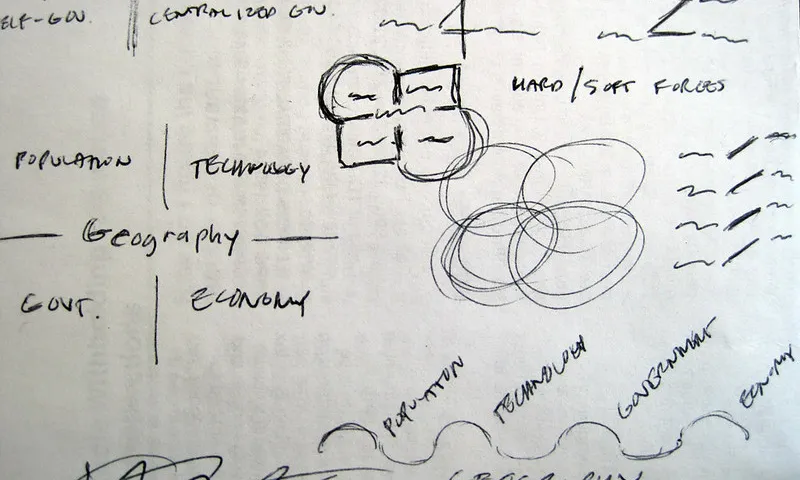 ELF-GOV. CENTRALIZED GOV.
HARD/SOFT FORCES
POPULATION TECHNOLOGY
Geography
GOVT. ECONOMY
POPULATION TECHNOLOGY GOVERNMENT ECONOMY
GEOGRAPHY